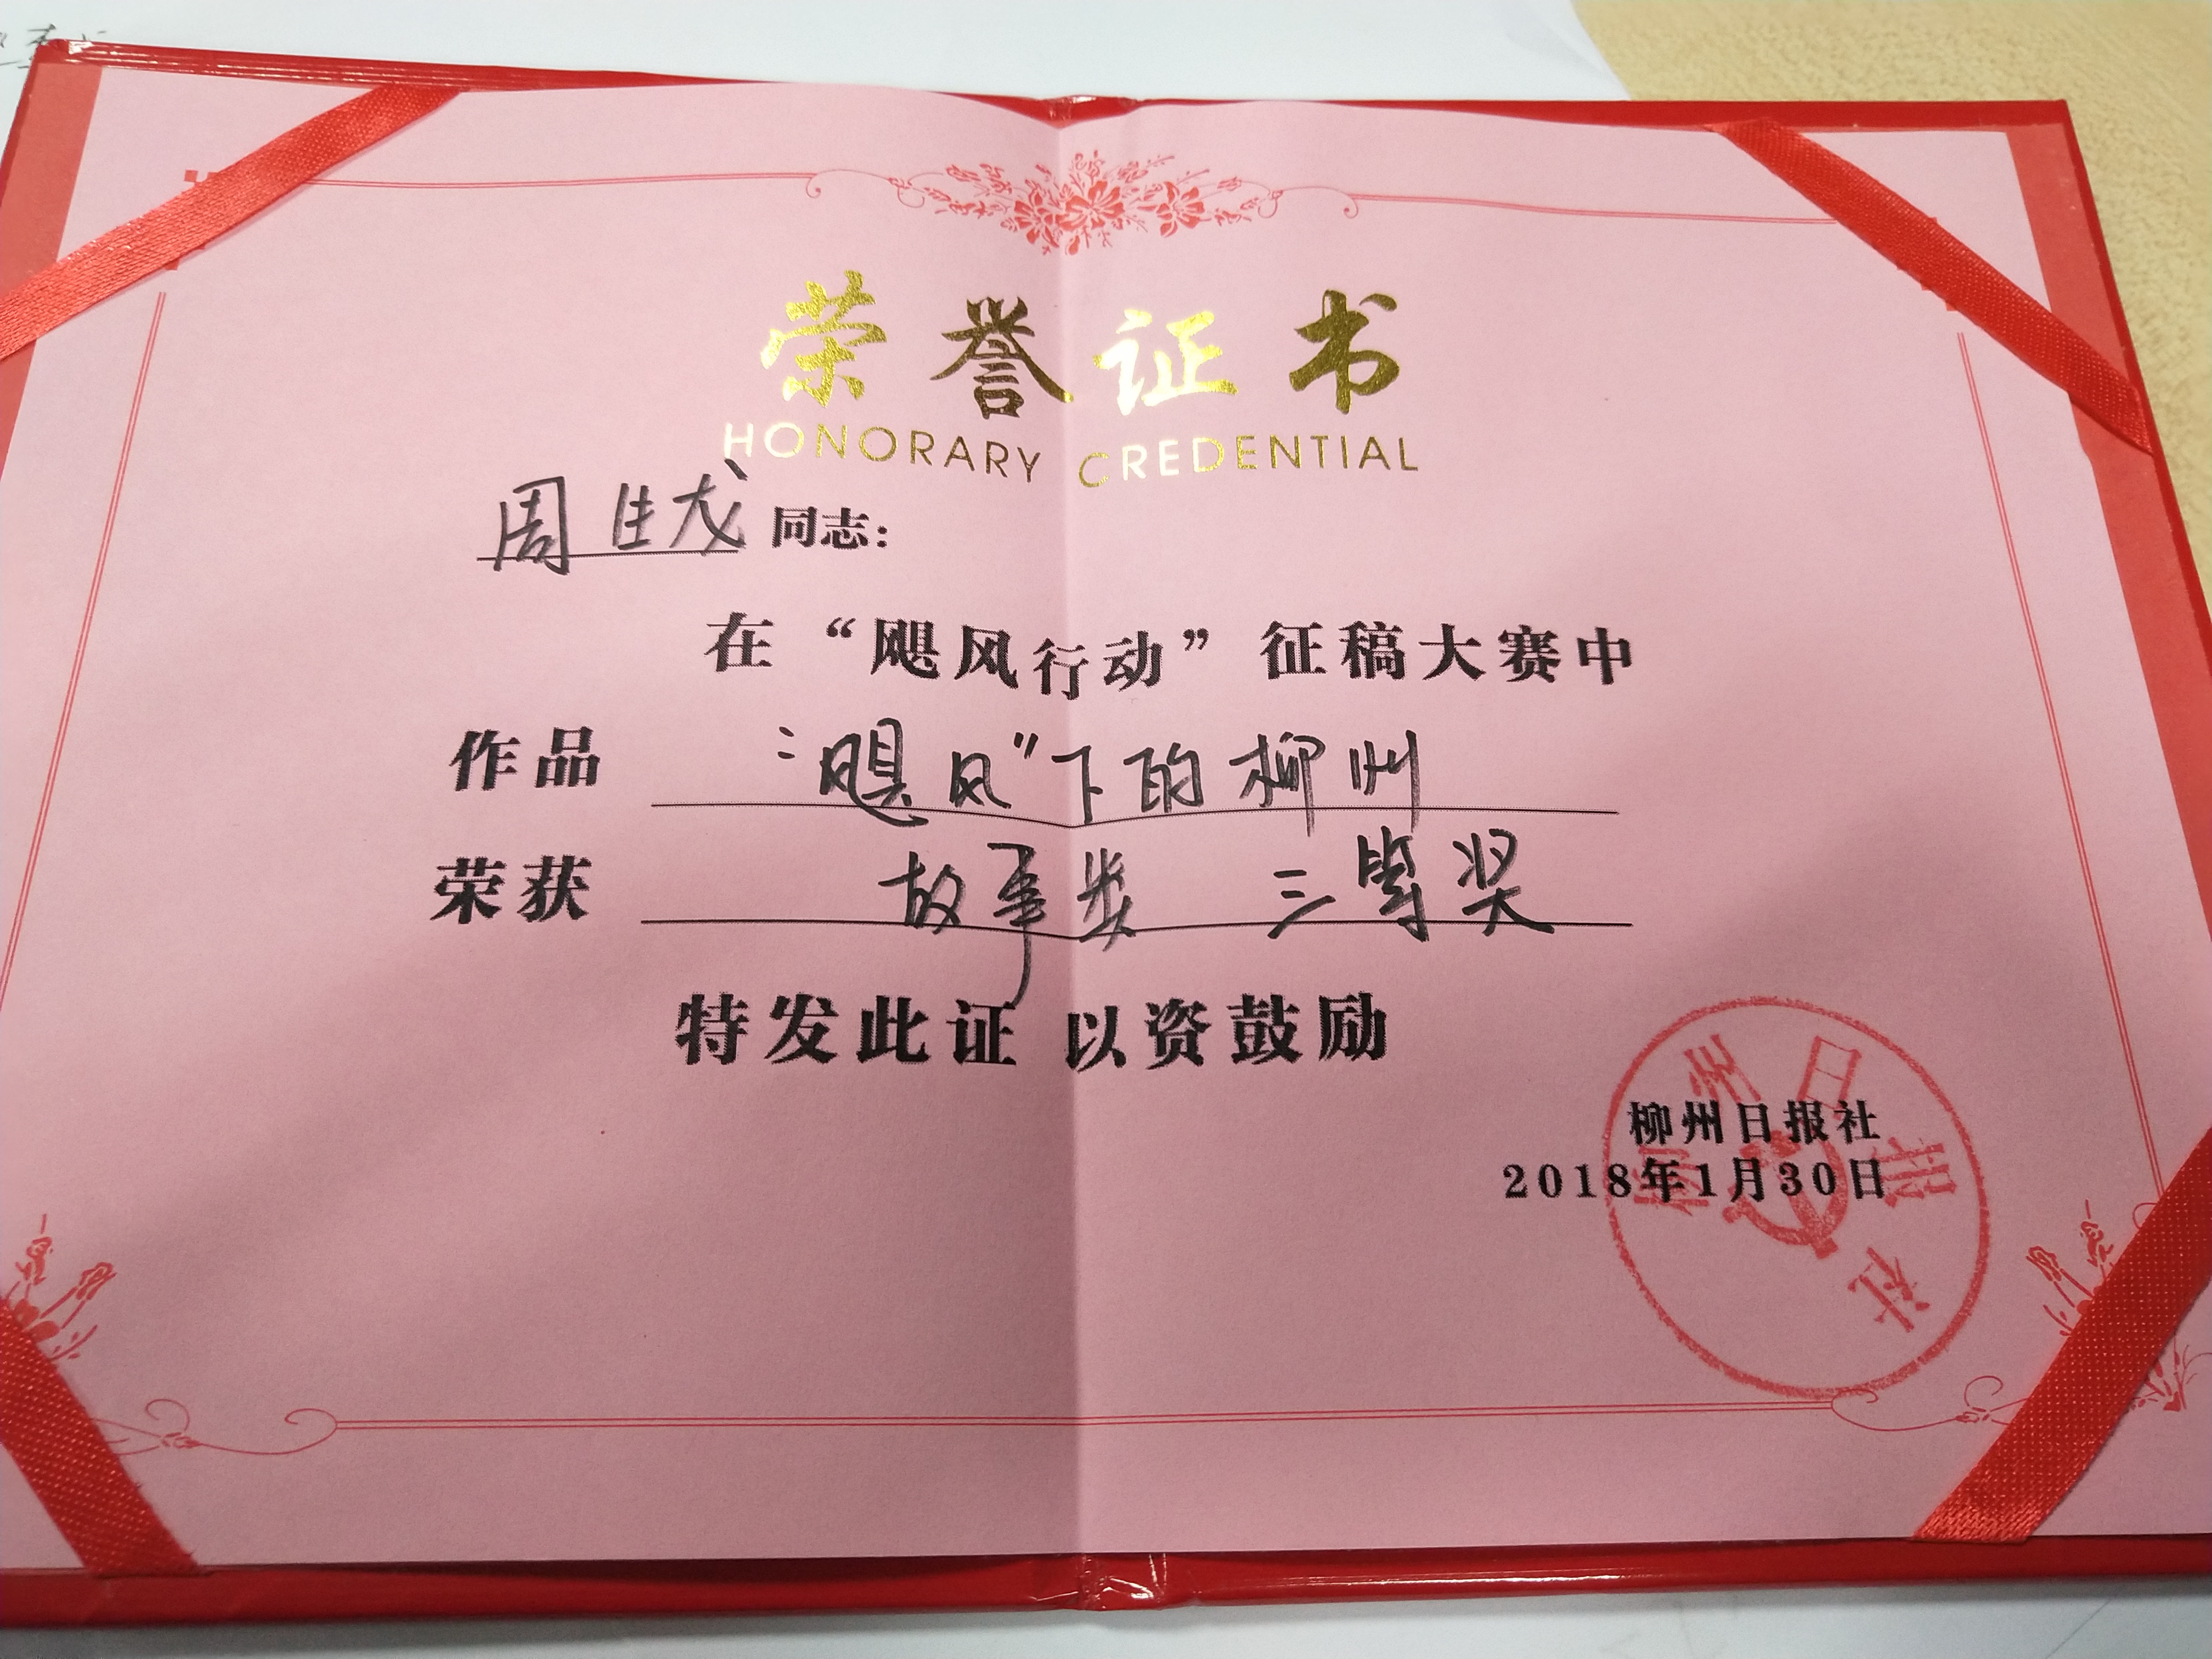 荣誉证书
HONORARY CREDENTIAL
周佳龙 同志:
在“飓风行动”征稿大赛中
作品 “飓风”下的柳州
荣获 故事类 三等奖
特发此证 以资鼓励
柳州日报社
2018年1月30日
柳州日报社